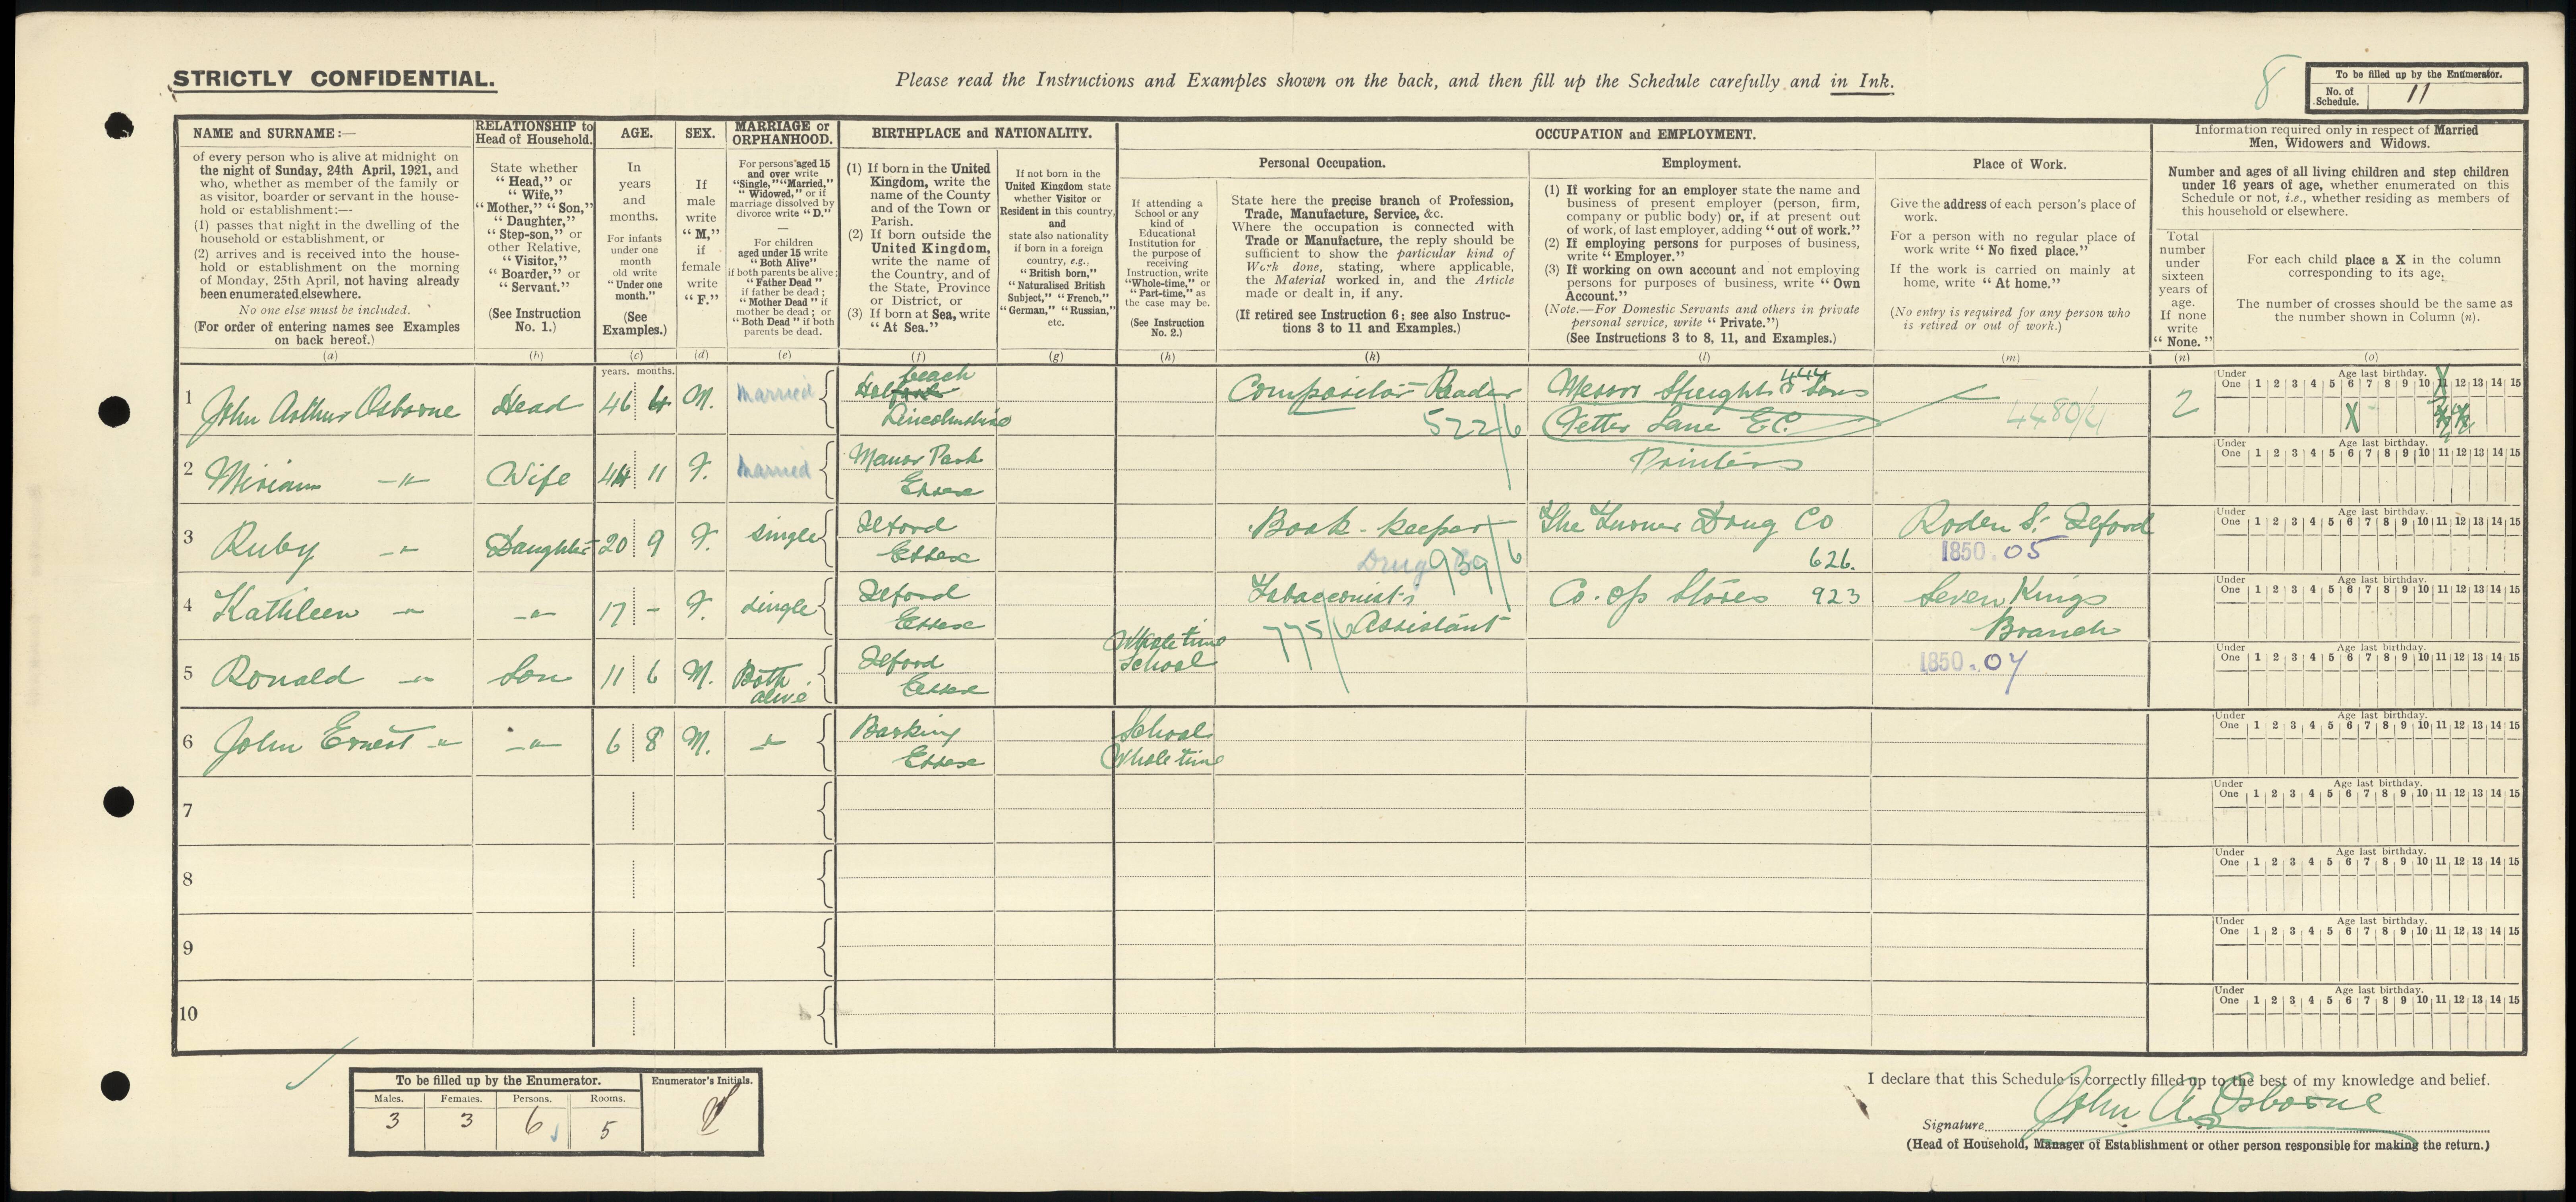 STRICTLY CONFIDENTIAL.
Please read the Instructions and Examples shown on the back, and then fill up the Schedule carefully and in Ink.
8
To be filled up by the Enumerator.
No. of Schedule. 11
NAME and SURNAME:—
of every person who is alive at midnight on
the night of Sunday, 24th April, 1921, and
who, whether as member of the family or
as visitor, boarder or servant in the house-
hold or establishment:—
(1) passes that night in the dwelling of the
household or establishment, or
(2) arrives and is received into the house-
hold or establishment on the morning
of Monday, 25th April, not having already
been enumerated elsewhere.
No one else must be included.
(For order of entering names see Examples
on back hereof.)
(a)
RELATIONSHIP to
Head of Household.
State whether
"Head," or
"Wife,"
"Mother," "Son,"
"Daughter,"
"Step-son," or
other Relative,
"Visitor,"
"Boarder," or
"Servant."
(See Instruction
No. 1.)
(b)
AGE.
In
years
and
months.
For infants
under one
month
old write
"Under one
month."
(See
Examples.)
(c)
SEX.
If
male
write
"M,"
if
female
write
"F."
(d)
MARRIAGE or
ORPHANHOOD.
For persons aged 15
and over write
"Single," "Married,"
"Widowed," or if
marriage dissolved by
divorce write "D."
—
For children
aged under 15 write
"Both Alive"
if both parents be alive;
"Father Dead"
if father be dead;
"Mother Dead" if
mother be dead; or
"Both Dead" if both
parents be dead.
(e)
BIRTHPLACE and NATIONALITY.
(1) If born in the United
Kingdom, write the
name of the County
and of the Town or
Parish.
(2) If born outside the
United Kingdom,
write the name of
the Country, and of
the State, Province
or District, or
(3) If born at Sea, write
"At Sea."
(f)
If not born in the
United Kingdom state
whether Visitor or
Resident in this country,
and
state also nationality
if born in a foreign
country, e.g.,
"British born,"
"Naturalised British
Subject," "French,"
"German," "Russian,"
etc.
(g)
OCCUPATION and EMPLOYMENT.
If attending a
School or any
kind of
Educational
Institution for
the purpose of
receiving
Instruction, write
"Whole-time," or
"Part-time," as
the case may be.
(See Instruction
No. 2.)
(h)
Personal Occupation.
State here the precise branch of Profession,
Trade, Manufacture, Service, &c.
Where the occupation is connected with
Trade or Manufacture, the reply should be
sufficient to show the particular kind of
Work done, stating, where applicable,
the Material worked in, and the Article
made or dealt in, if any.
(If retired see Instruction 6; see also Instruc-
tions 3 to 11 and Examples.)
(k)
Employment.
(1) If working for an employer state the name and
business of present employer (person, firm,
company or public body) or, if at present out
of work, of last employer, adding "out of work."
(2) If employing persons for purposes of business,
write "Employer."
(3) If working on own account and not employing
persons for purposes of business, write "Own
Account."
(Note.—For Domestic Servants and others in private
personal service, write "Private.")
(See Instructions 3 to 8, 11, and Examples.)
(l)
Place of Work.
Give the address of each person's place of
work.
For a person with no regular place of
work write "No fixed place."
If the work is carried on mainly at
home, write "At home."
(No entry is required for any person who
is retired or out of work.)
(m)
Information required only in respect of Married
Men, Widowers and Widows.
Number and ages of all living children and step children
under 16 years of age, whether enumerated on this
Schedule or not, i.e., whether residing as members of
this household or elsewhere.
Total
number
under
sixteen
years of
age.
If none
write
"None."
(n)
For each child place a X in the column
corresponding to its age.
The number of crosses should be the same as
the number shown in Column (n).
(o)
years. months.
Under One Age last birthday. 1 2 3 4 5 6 7 8 9 10 11 12 13 14 15
1 John Arthur Osborne Head 46 4 M. Married Holbeach Lincolnshire Compositor Reader 522/6 Messrs Straights & Sons 444 Fetter Lane E.C. Printers 4480/21 2 X X
2 Miriam -"- Wife 44 11 F. Married Manor Park Essex
Under One Age last birthday. 1 2 3 4 5 6 7 8 9 10 11 12 13 14 15
3 Ruby -"- Daughter 20 9 F. Single Ilford Essex Book-keeper Drug 939/6 The Turner Drug Co 626. Roden St Ilford 1850.05
Under One Age last birthday. 1 2 3 4 5 6 7 8 9 10 11 12 13 14 15
4 Kathleen -"- -"- 17 - F. Single Ilford Essex Tobacconist's Assistant 775/6 Co. op Stores 923 Seven Kings Branch
Under One Age last birthday. 1 2 3 4 5 6 7 8 9 10 11 12 13 14 15
5 Ronald -"- Son 11 6 M. Both alive Ilford Essex Whole time School 1850.07
Under One Age last birthday. 1 2 3 4 5 6 7 8 9 10 11 12 13 14 15
6 John Ernest -"- -"- 6 8 M. -"- Barking Essex School Whole time
Under One Age last birthday. 1 2 3 4 5 6 7 8 9 10 11 12 13 14 15
7
Under One Age last birthday. 1 2 3 4 5 6 7 8 9 10 11 12 13 14 15
8
Under One Age last birthday. 1 2 3 4 5 6 7 8 9 10 11 12 13 14 15
9
Under One Age last birthday. 1 2 3 4 5 6 7 8 9 10 11 12 13 14 15
10
Under One Age last birthday. 1 2 3 4 5 6 7 8 9 10 11 12 13 14 15
To be filled up by the Enumerator.
Males. Females. Persons. Rooms.
3 3 6 5
Enumerator's Initials.
I declare that this Schedule is correctly filled up to the best of my knowledge and belief.
Signature John A. Osborne
(Head of Household, Manager of Establishment or other person responsible for making the return.)